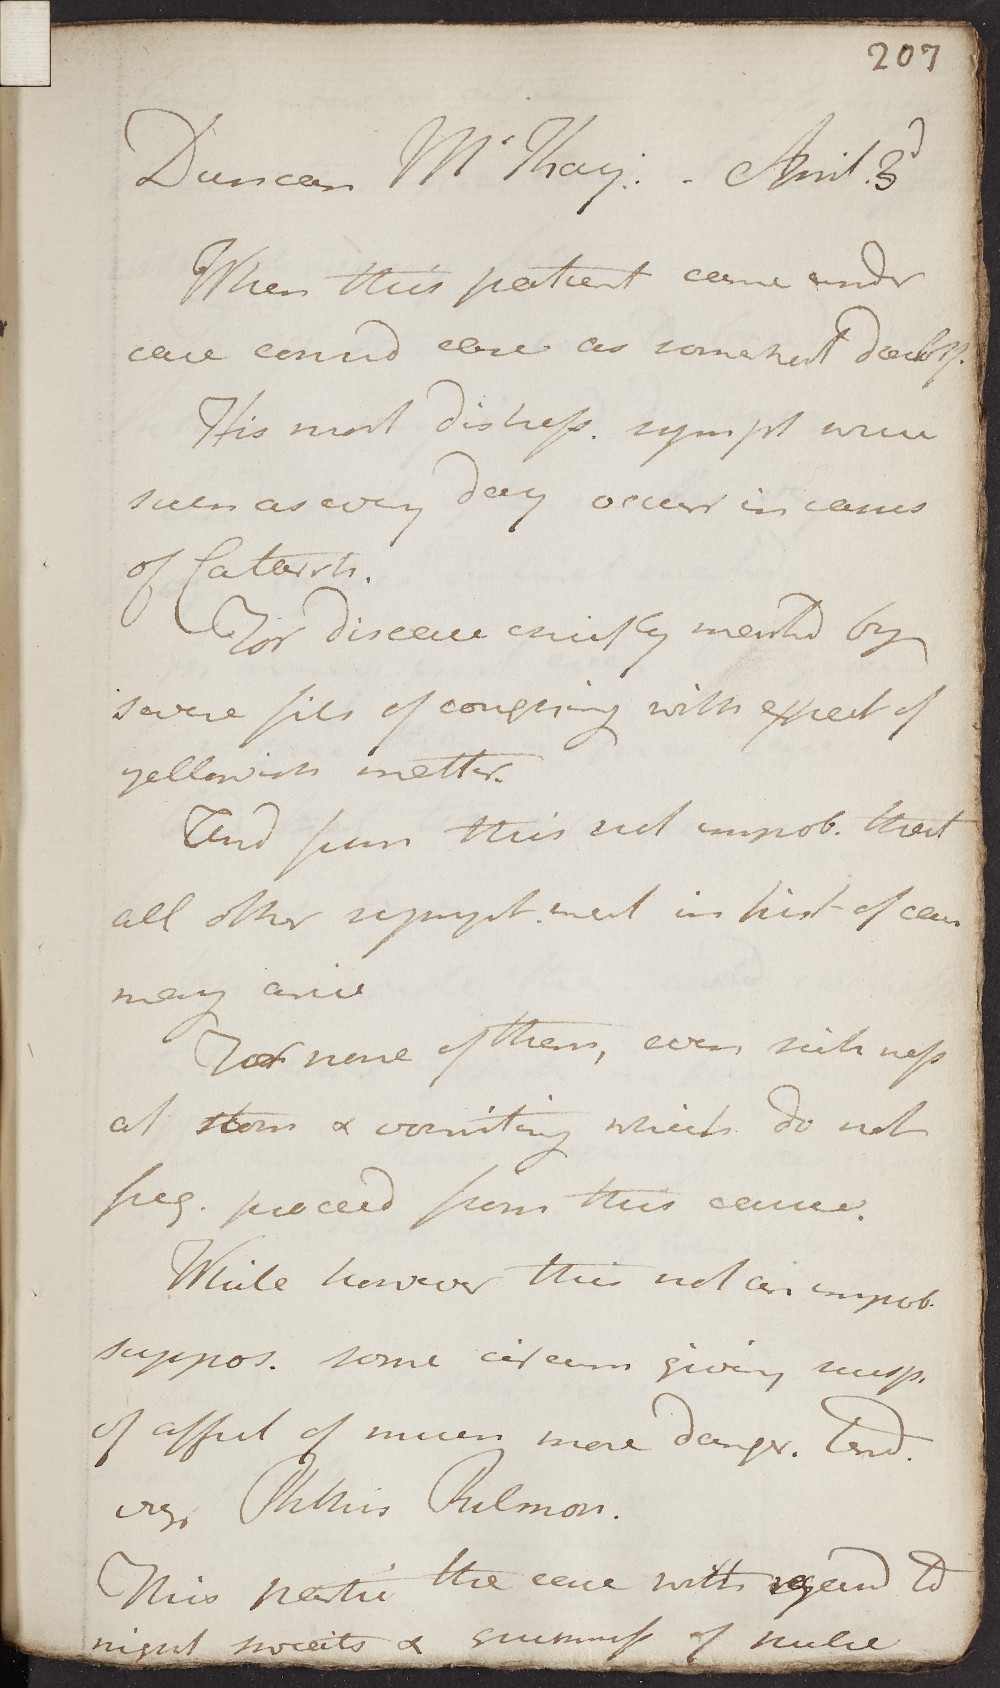 207
Duncan McKay. - April. 3d
When this patient came undr
care consid case as somewhat doubtf.
His most distress. sympt were
such as every day occur in cases
of Catarrh.
For disease chiefly mark'd by
severe fits of coughing with expect of
yellowish matter.
And from this not improb. that
all other sympt. ment in hist of case
may arise
For none of them, even sickness
at stom & vomiting which do not
freq. proceed from this cause.
While however this not an improb.
suppos. some circum giving susp.
of affect of much more danger. And.
Phthis Pulmon.
This partic the case with regard to
night sweats & of pulse